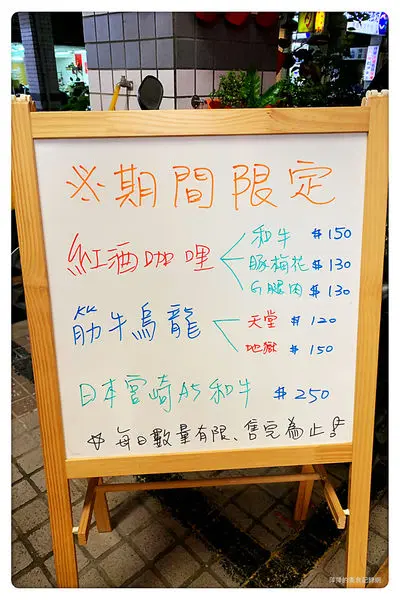 ※期間限定
紅酒咖哩
和牛 $150
豚梅花 $130
$130
筋牛烏龍
天堂 $120
地獄 $150
日本宮崎A5和牛 $250
每日數量有限、售完為止!
萍萍的美食記錄網